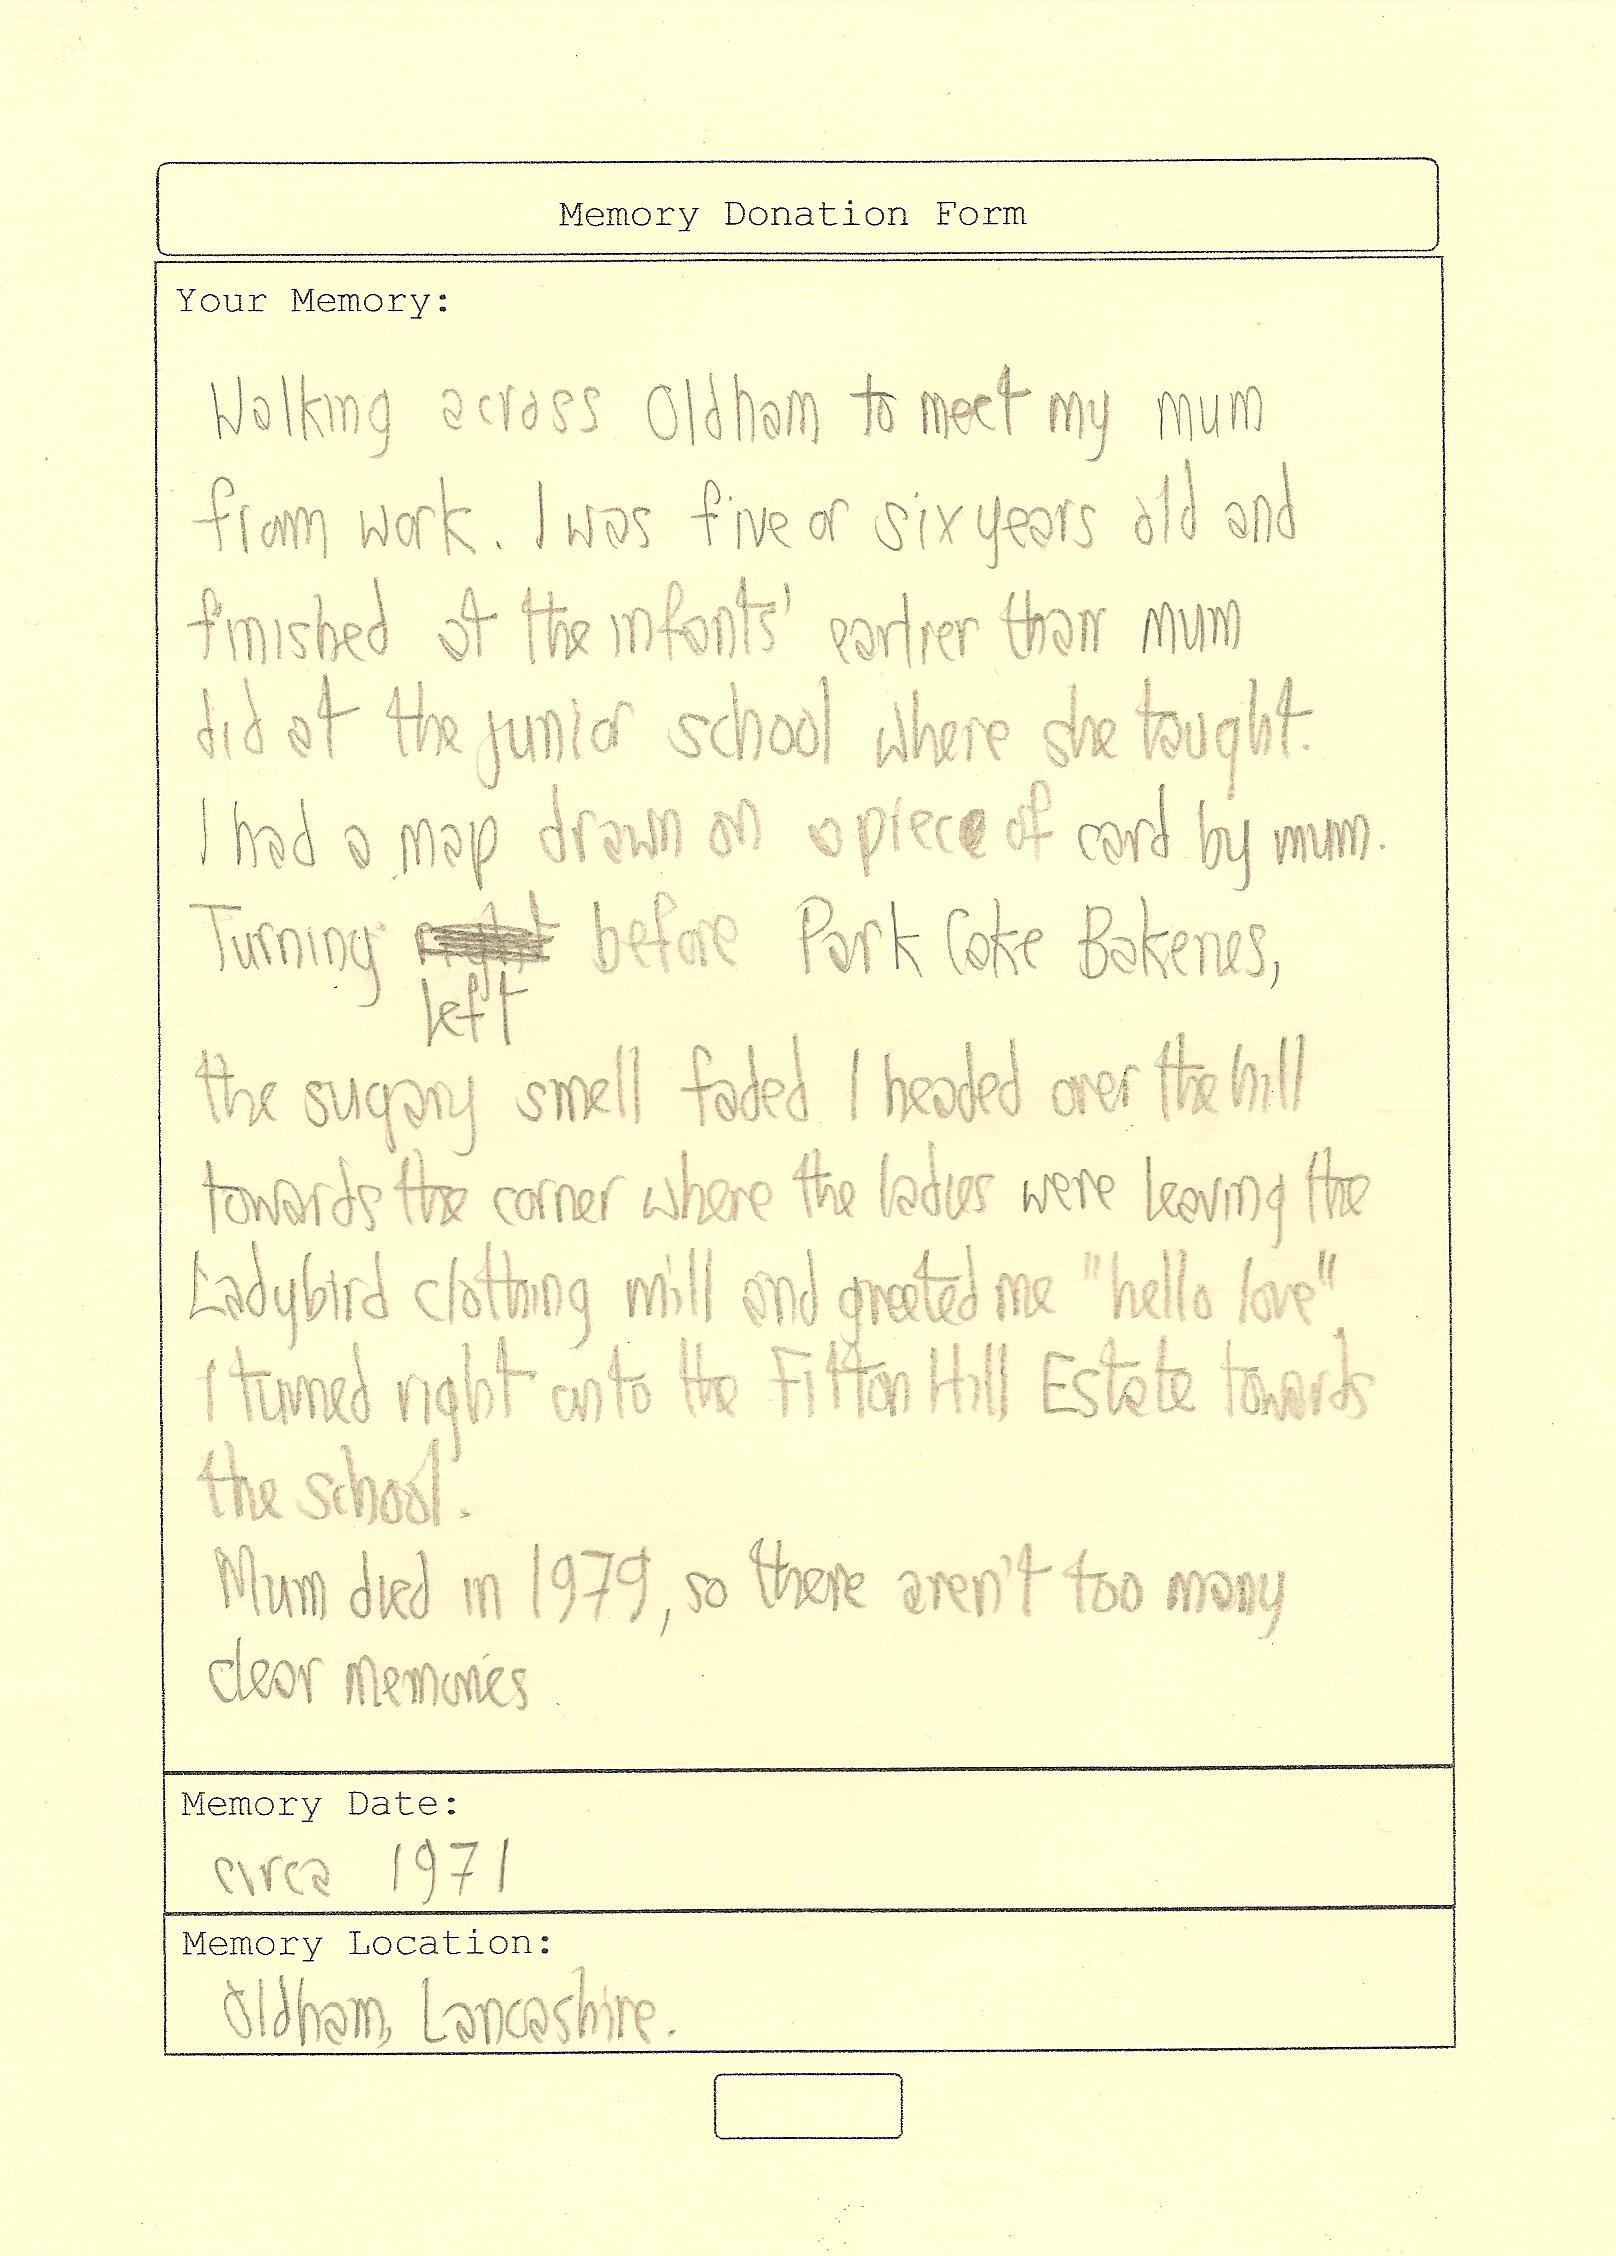 Memory Donation Form
Your Memory:
Walking across Oldham to meet my mum
from work. I was five or six years old and
finished at the infants' earlier than mum
did at the junior school where she taught.
I had a map drawn on a piece of card by mum.
Turning right before Park Cake Bakeries,
left
the sugary smell faded I headed over the hill
towards the corner where the ladies were leaving the
Ladybird clothing mill and greeted me "hello love".
I turned right onto the Fitton Hill Estate towards
the school.
Mum died in 1979, so there aren't too many
clear memories.
Memory Date:
circa 1971
Memory Location:
Oldham, Lancashire.